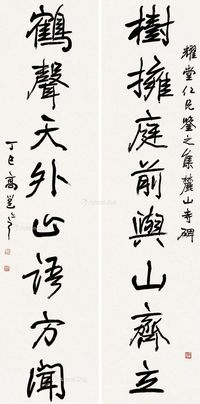 耀堂仁兄鑒之集麓山寺碑
樹擁庭前與山齊立
鶴聲天外止語方聞
丁巳高邕之